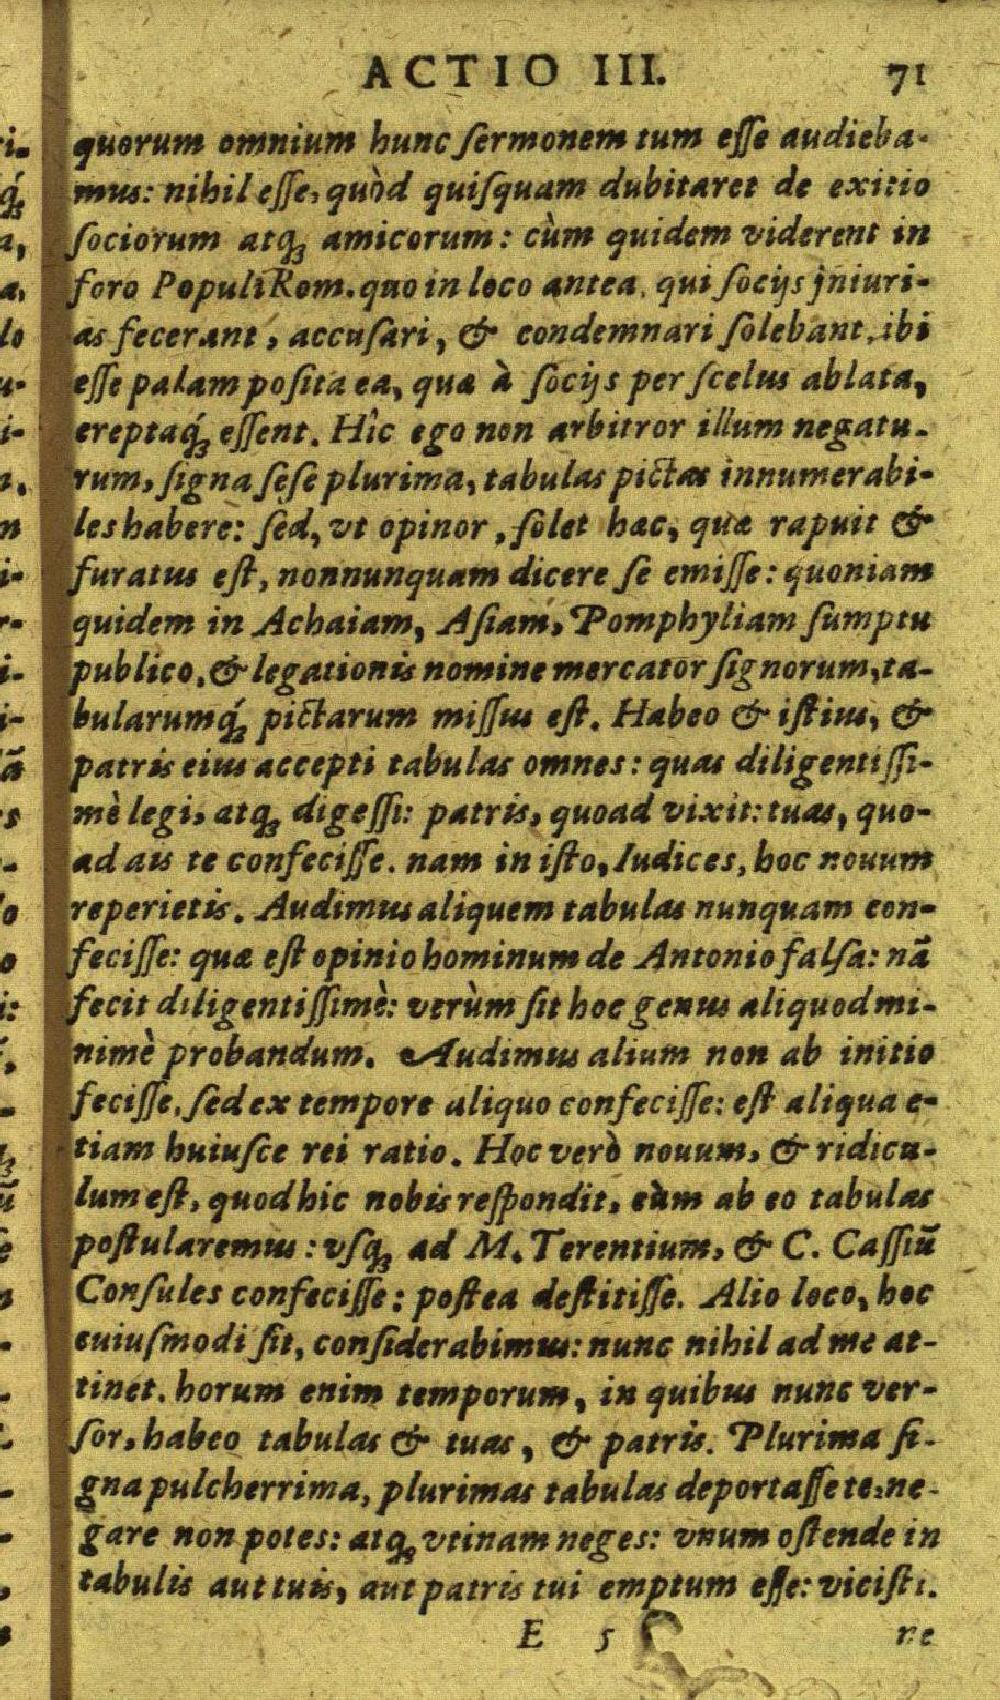 ACTIO III. 71
quorum omnium hunc ſermonem tum eſſe audieba-
mus: nihil eſſe, quòd quiſquam dubitaret de exitio
ſociorum atq́ꝫ amicorum: cùm quidem viderent in
foro Populi Rom. quo in loco antea, qui ſocijs iniuri-
as fecerant, accuſari, & condemnari ſolebant, ibi
eſſe palam poſita ea, quæ à ſocijs per ſcelus ablata,
ereptaq́ꝫ eſſent. Hîc ego non arbitror illum negatu-
rum, ſigna ſeſe plurima, tabulas pictas innumerabi-
les habere: ſed, vt opinor, ſolet hæc, quæ rapuit &
furatus eſt, nonnunquam dicere ſe emiſſe: quoniam
quidem in Achaiam, Aſiam, Pomphyliam ſumptu
publico, & legationis nomine mercator ſignorum, ta-
bularumq́ꝫ pictarum miſſus eſt. Habeo & iſtius, &
patris eius accepti tabulas omnes: quas diligentiſſi-
mè legi, atqꝫ digeſſi: patris, quoad vixit: tuas, quo-
ad ais te confeciſſe. nam in iſto, Iudices, hoc nouum
reperietis. Audimus aliquem tabulas nunquam con-
feciſſe: quæ eſt opinio hominum de Antonio falſa: nā
fecit diligentiſſimè: verùm ſit hoc genus aliquod mi-
nimè probandum. Audimus alium non ab initio
feciſſe, ſed ex tempore aliquo confeciſſe: eſt aliqua e-
tiam huiuſce rei ratio. Hoc verò nouum, & ridicu-
lum eſt, quod hic nobis reſpondit, cùm ab eo tabulas
poſtularemus: vſqꝫ ad M. Terentium, & C. Caſſiū
Conſules confeciſſe: poſtea deſtitiſſe. Alio loco, hoc
cuiuſmodi ſit, conſiderabimus: nunc nihil ad me at-
tinet. horum enim temporum, in quibus nunc ver-
ſor, habeo tabulas & tuas, & patris. Plurima ſi-
gna pulcherrima, plurimas tabulas deportaſſe te, ne-
gare non potes: atqꝫ vtinam neges: vnum oſtende in
tabulis aut tuis, aut patris tui emptum eſſe: viciſti.
E 5 ne